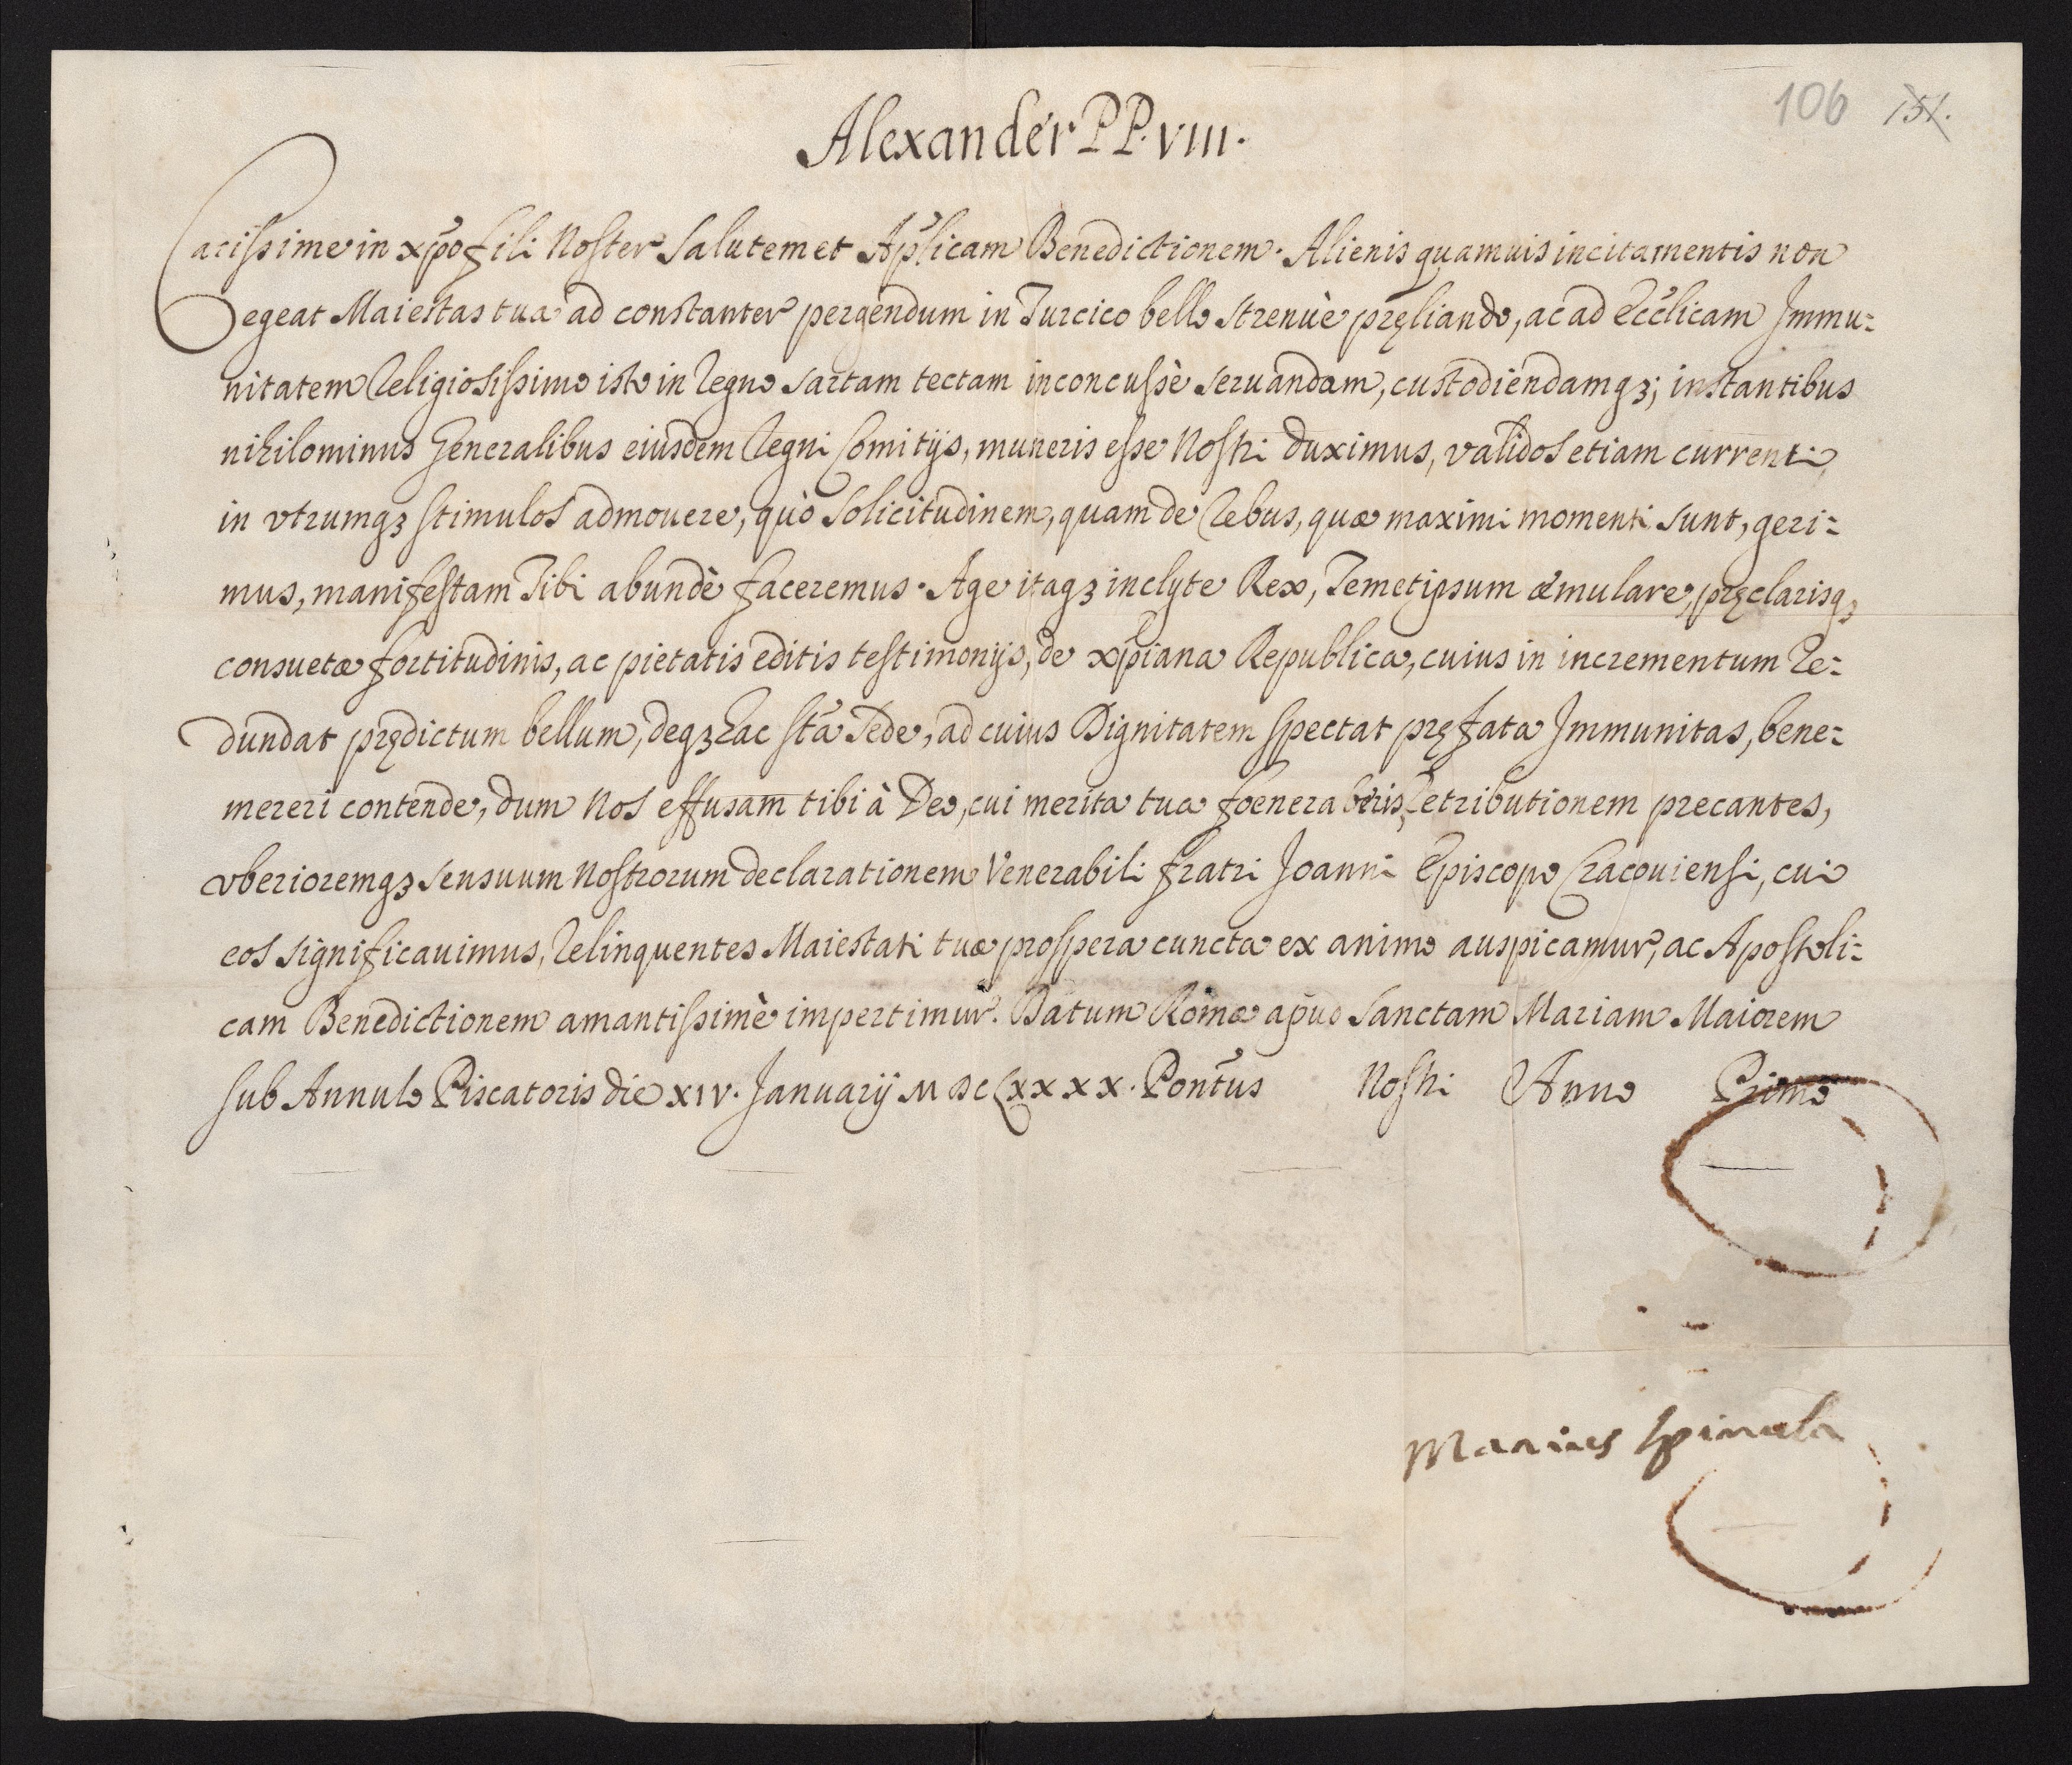 106 151.
Alexander PP. VIII.
Carissime in xp̃o fili Noster Salutem et Ap̃licam Benedictionem. Alienis quamuis incitamentis non
egeat Maiestas tua ad constanter pergendum in Turcico bello strenuè pręliando, ac ad Eccl̃icam Immu-
nitatem Religiosissimo isto in Regno sartam tectam inconcussè seruandam, custodiendamqꝫ; instantibus
nihilominus Generalibus eiusdem Regni Comitijs, muneris esse Nostri duximus, validos etiam currenti
in vtrumqꝫ stimulos admouere, quò solicitudinem, quam de Rebus, quæ maximi momenti sunt, geri-
mus, manifestam Tibi abundè faceremus. Age itaqꝫ inclyte Rex, Temetipsum æmulare, pręclarisqꝫ
consuetæ fortitudinis, ac pietatis editis testimonijs, de xp̃iana Republica, cuius in incrementum Re-
dundat prędictum bellum, deqꝫ hac Sta Sede, ad cuius Dignitatem spectat pręfata Immunitas, bene-
mereri contende, dum Nos effusam tibi à Deo, cui merita tua foeneraberis, Retributionem precantes,
vberioremqꝫ sensuum Nostrorum declarationem Venerabili fratri Joanni Episcopo Cracouiensi, cui
eos significauimus, Relinquentes Maiestati tuæ prospera cuncta ex animo auspicamur, ac Apostoli-
cam Benedictionem amantissimè impertimur. Datum Romæ apud Sanctam Mariam Maiorem
sub Annulo Piscatoris die XIV. Januarij MDCLXXXX. Pontus Nostri Anno Primo
Marius Spinula